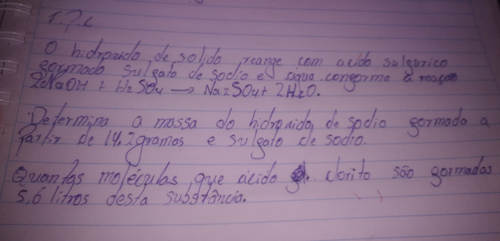 1.ª
O hidroxido de solido reange com acido sulgurico
gormado sulgato de sodio e agua congorme a reação
2NaOH + H2SO4 → Na2SO4 + 2H2O.
Determina a massa do hidroxido de sodio gormada a
partir de 14,2 gramas e sulgato de sodio.
Quantas moléculas que acido clorito são gormadas
5,6 litros desta substância.